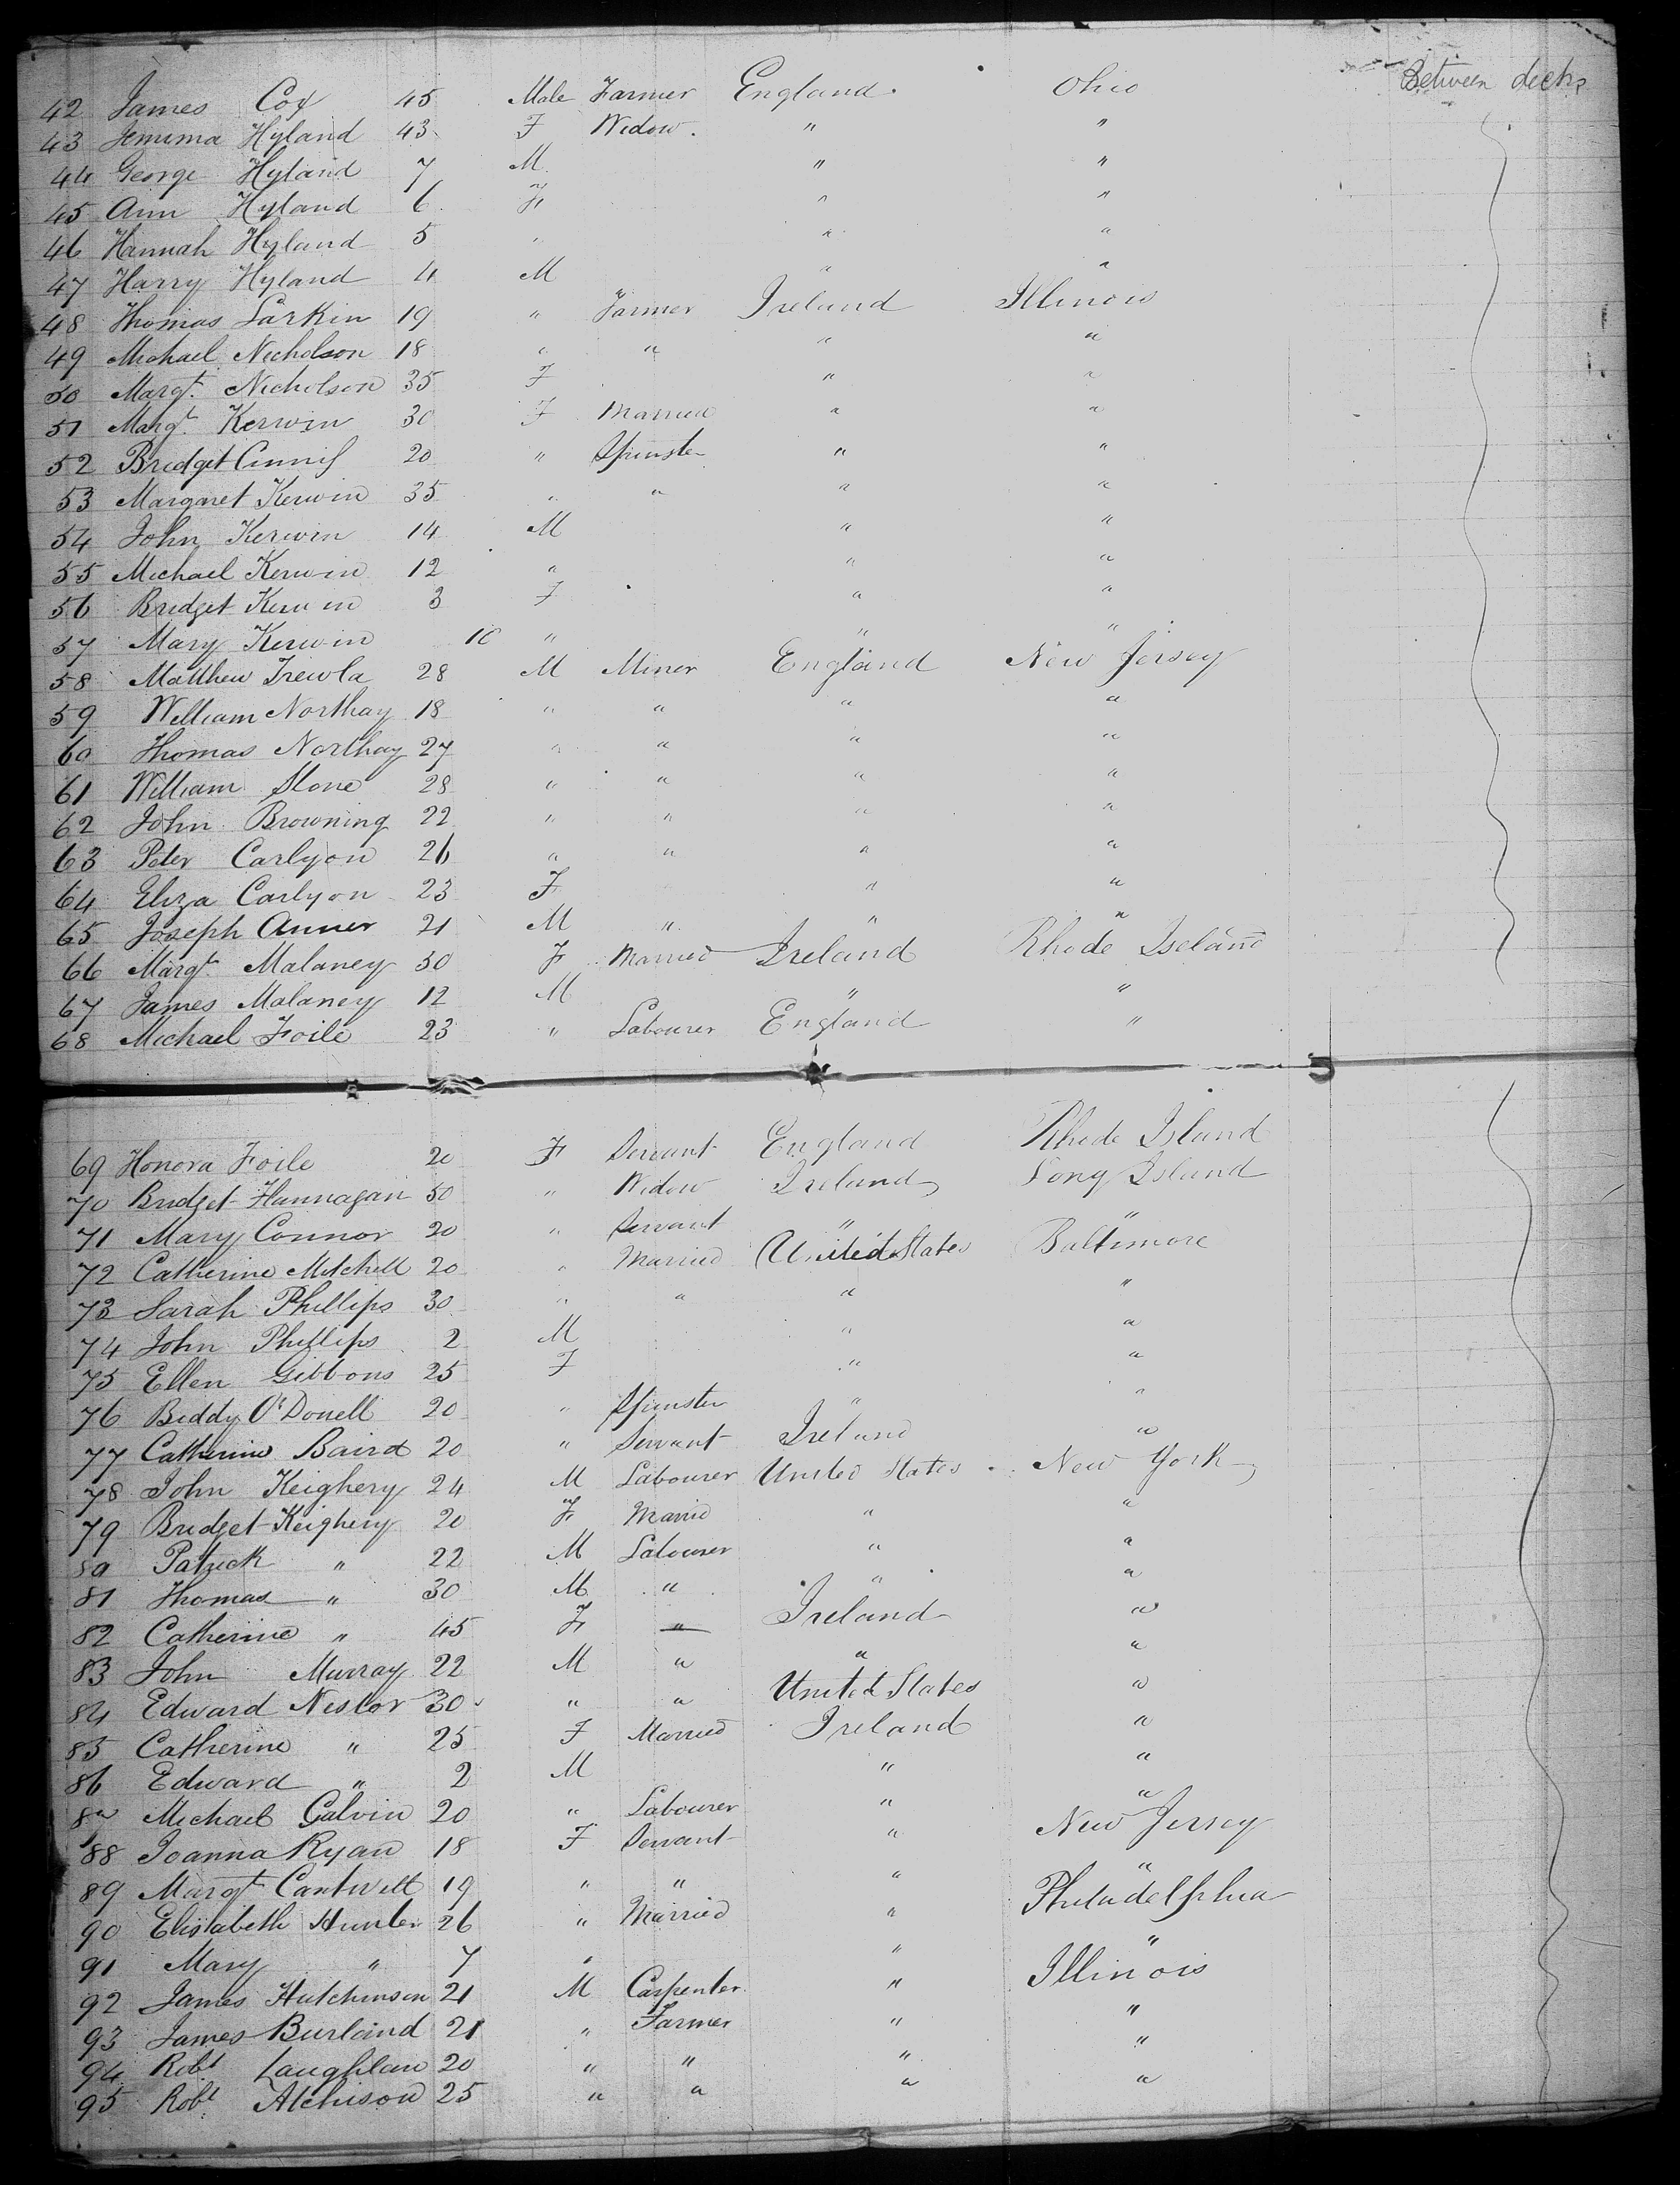 Between decks
42 James Cox 45 Male Farmer England Ohio
43 Jemima Hyland 43 F Widow. " "
44 George Hyland 7 M " "
45 Ann Hyland 6 F " "
46 Hannah Hyland 5 " " "
47 Harry Hyland 4 M " "
48 Thomas Larkin 19 " Farmer Ireland Illinois
49 Michael Nicholson 18 " " " "
50 Margt. Nicholson 35 F " "
51 Margt. Kerwin 30 F Married " "
52 Bridget 20 " Spinster " "
53 Margaret Kerwin 35 " " " "
54 John Kerwin 14 M " "
55 Michael Kerwin 12 " " "
56 Bridget Kerwin 3 F " "
57 Mary Kerwin 10 " " "
58 Matthew Trewla 28 M Miner England New Jersey
59 William Northay 18 " " " "
60 Thomas Northay 27 " " " "
61 William Stone 28 " " " "
62 John Browning 22 " " " "
63 Peter Carlyon 26 " " " "
64 Eliza Carlyon 23 F " "
65 Joseph Anner 21 M " " "
66 Margt Malaney 30 F Married Ireland Rhode Iseland
67 James Malaney 12 M " "
68 Michael Foile 23 " Labourer England "
69 Honora Foile 20 F Servant England Rhode Island
70 Bridget Hannagan 50 " Widow Ireland Long Island
71 Mary Connor 20 " Servant " "
72 Catherine Mitchell 20 " Married United States Baltimore
73 Sarah Phillips 30 " " " "
74 John Phillips 2 M " "
75 Ellen Gibbons 25 F " "
76 Biddy O'Donell 20 " Spinster " "
77 Catherine Baird 20 " Servant Ireland "
78 John Keighery 24 M Labourer United States New York
79 Bridget Keighery 20 F Married " "
80 Patrick " 22 M Labourer " "
81 Thomas " 30 M " " "
82 Catherine " 45 F " Ireland "
83 John Murray 22 M " " "
84 Edward Nestor 30 " " United States "
85 Catherine " 25 F Married Ireland "
86 Edward " 2 M " "
87 Michael Galvin 20 " Labourer " "
88 Joanna Ryan 18 F Servant " New Jersey
89 Margt Cantwell 19 " " " "
90 Elisabeth Hunter 26 " Married " Philadelphia
91 Mary " 7 " " "
92 James Hutchinson 21 M Carpenter " Illinois
93 James Burland 21 " Farmer " "
94 Robt Laughlan 20 " " " "
95 Robt Atchison 25 " " " "